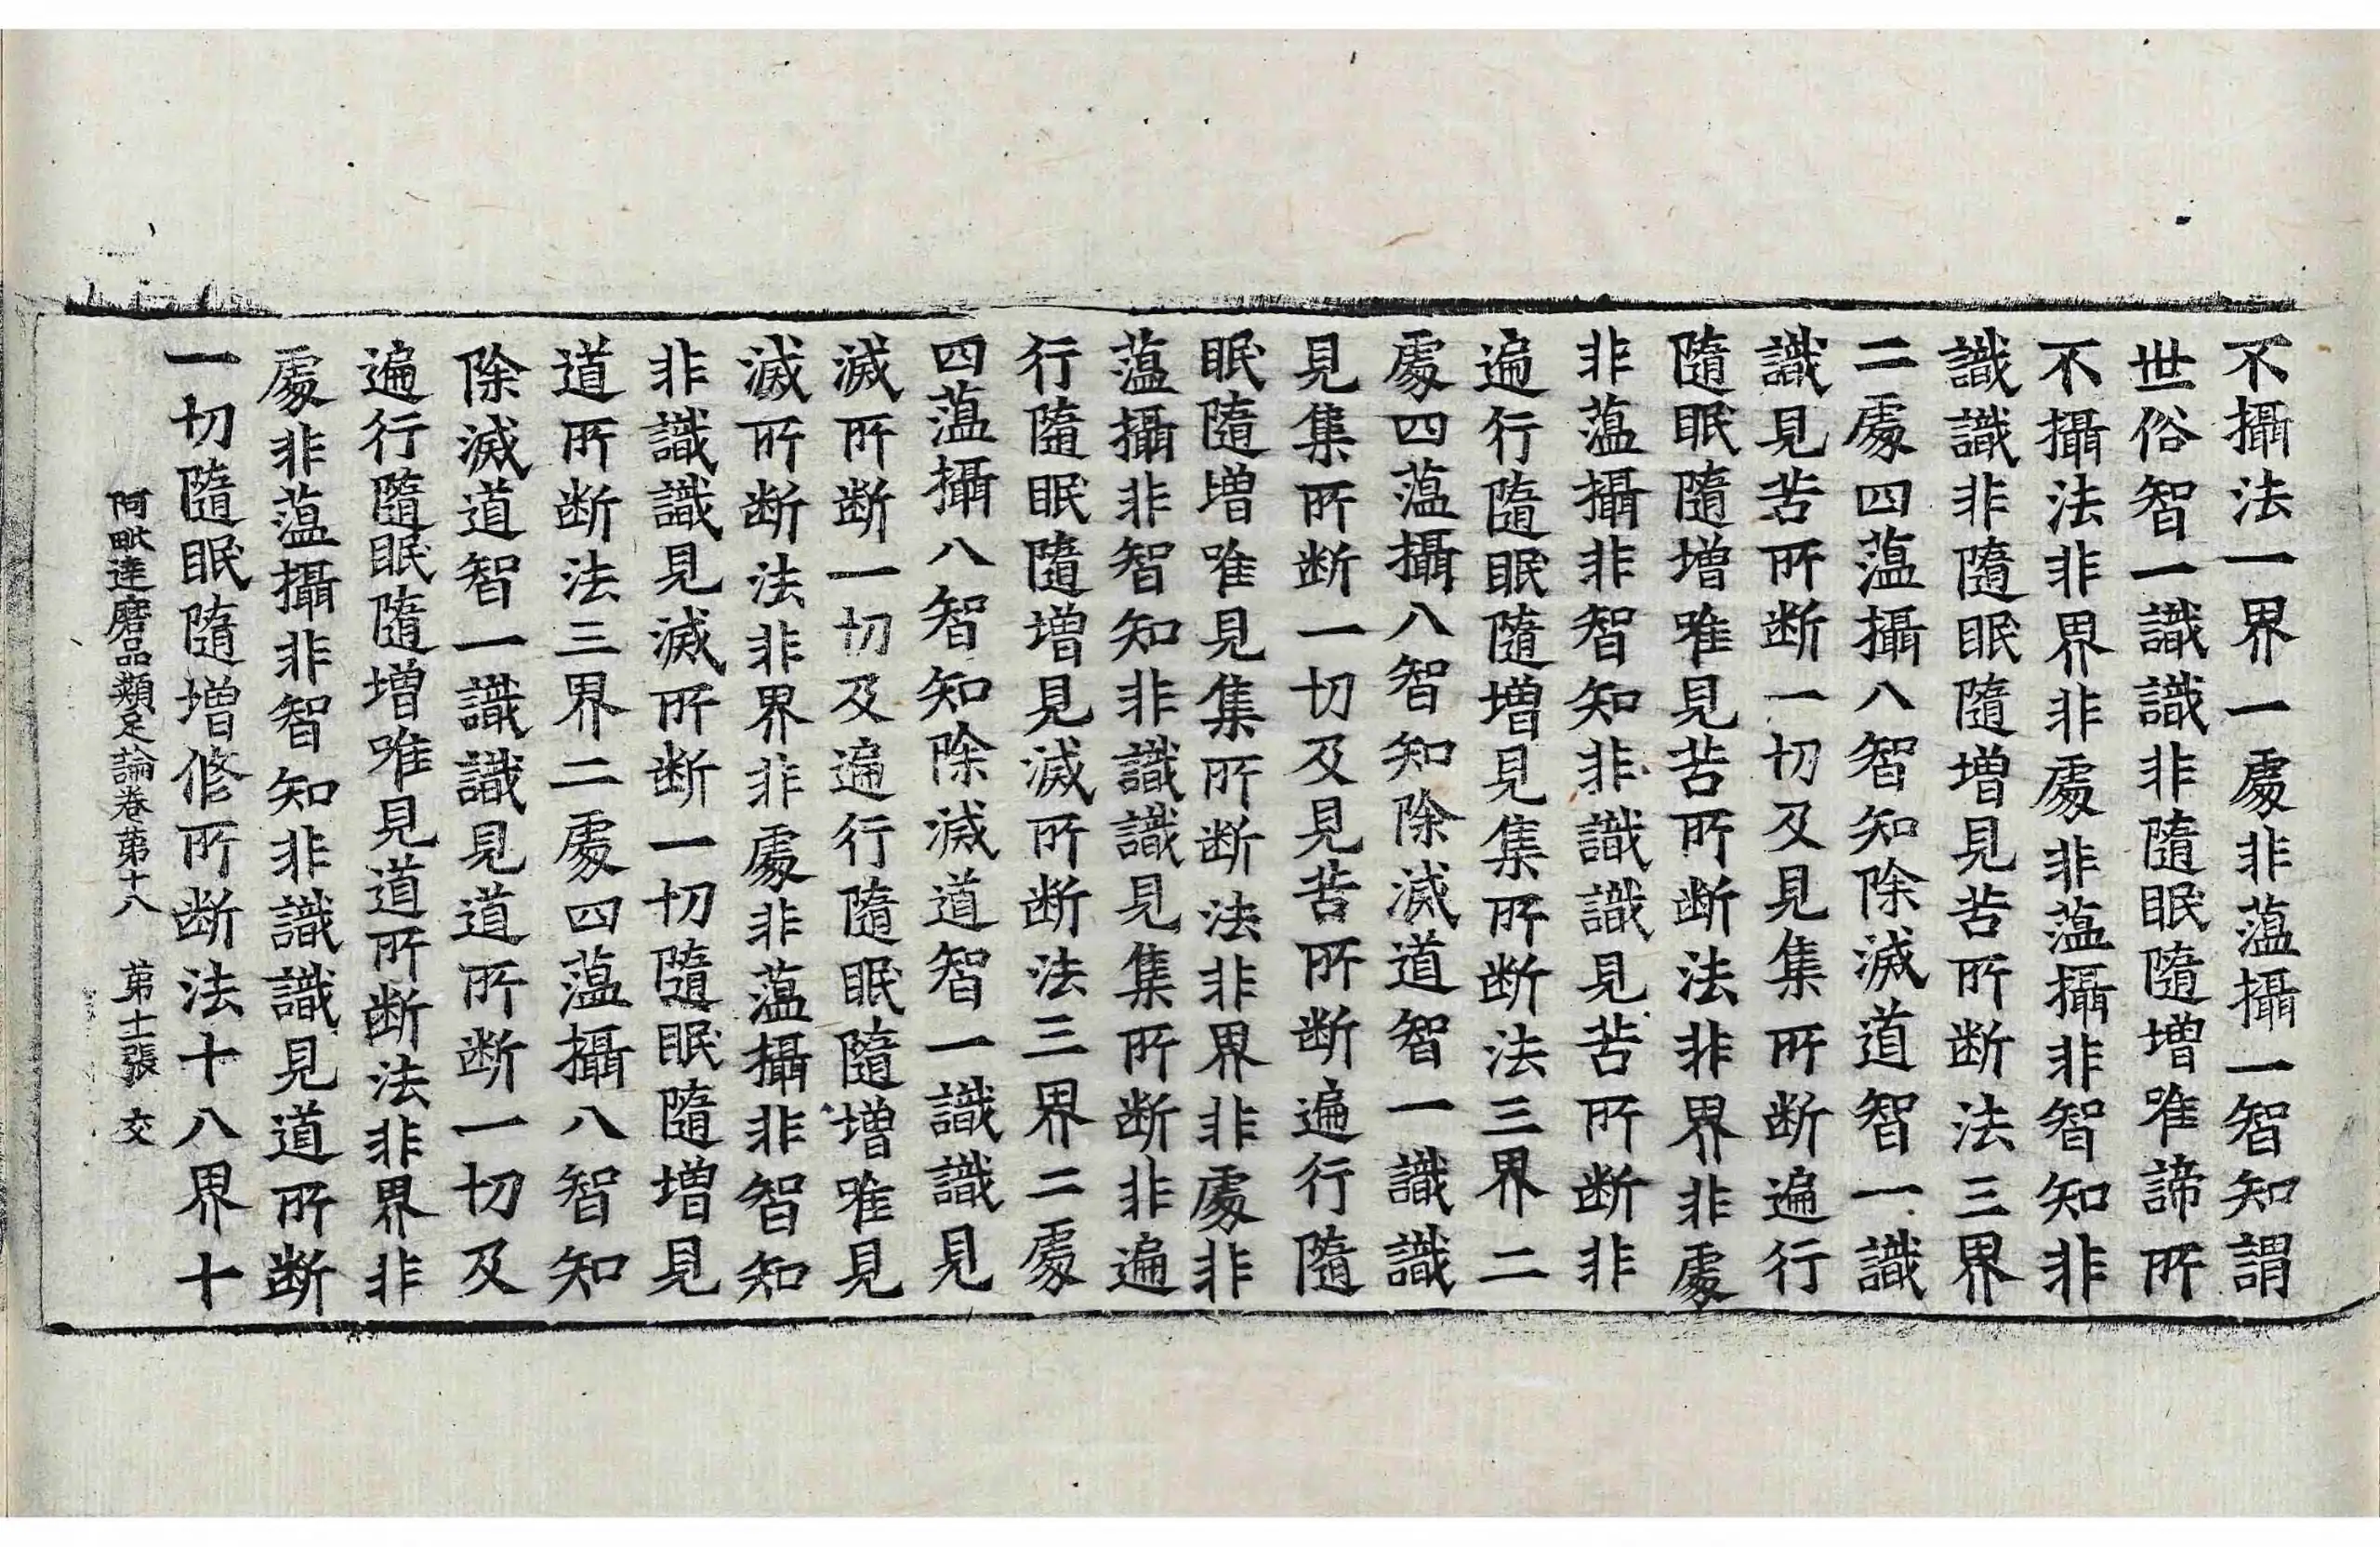 不攝法一界一處非蘊攝一智知謂
世俗智一識識非隨眠隨增唯諦所
不攝法非界非處非蘊攝非智知非
識識非隨眠隨增見苦所斷法三界
二處四蘊攝八智知除滅道智一識
識見苦所斷一切及見集所斷遍行
隨眠隨增唯見苦所斷法非界非處
非蘊攝非智知非識識見苦所斷非
遍行隨眠隨增見集所斷法三界二
處四蘊攝八智知除滅道智一識識
見集所斷一切及見苦所斷遍行隨
眠隨增唯見集所斷法非界非處非
蘊攝非智知非識識見集所斷非遍
行隨眠隨增見滅所斷法三界二處
四蘊攝八智知除滅道智一識識見
滅所斷一切及遍行隨眠隨增唯見
滅所斷法非界非處非蘊攝非智知
非識識見滅所斷一切隨眠隨增見
道所斷法三界二處四蘊攝八智知
除滅道智一識識見道所斷一切及
遍行隨眠隨增唯見道所斷法非界非
處非蘊攝非智知非識識見道所斷
一切隨眠隨增修所斷法十八界十
阿毗達磨品類足論卷第十八 第十二張 交